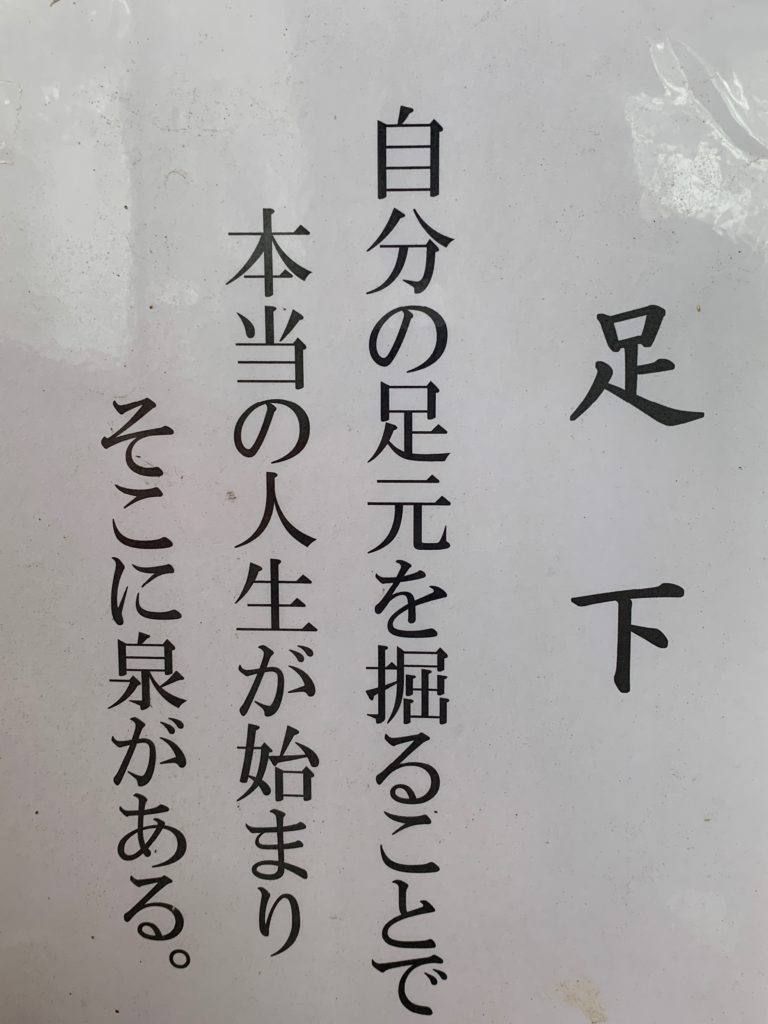 足下
自分の足元を掘ることで
本当の人生が始まり
そこに泉がある。